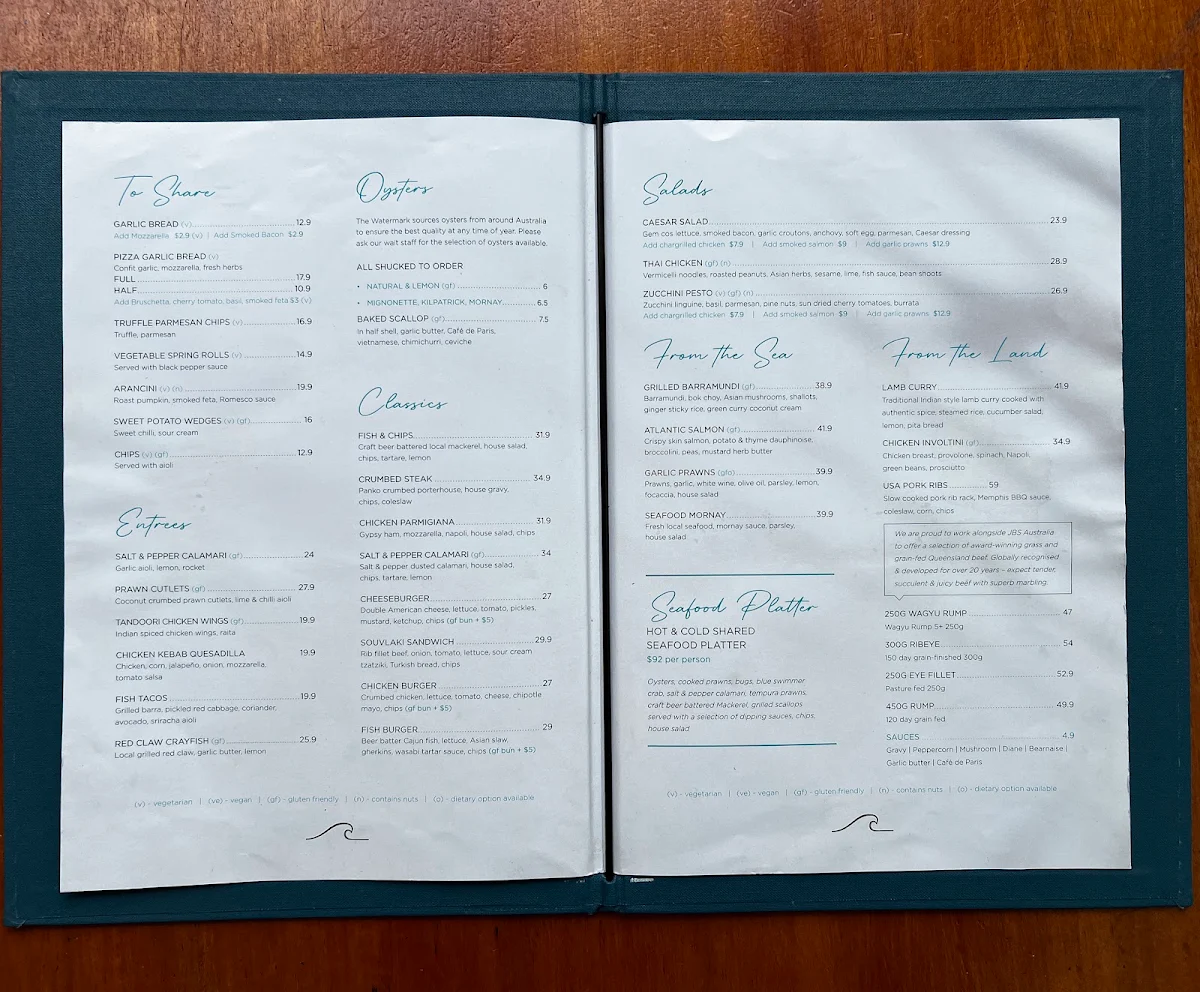 To Share
GARLIC BREAD (v) 12.9
Add Mozzarella $2.9 (v) | Add Smoked Bacon $2.9
PIZZA GARLIC BREAD (v)
Confit garlic, mozzarella, fresh herbs
FULL 17.9
HALF 10.9
Add Bruschetta, cherry tomato, basil, smoked feta $3 (v)
TRUFFLE PARMESAN CHIPS (v) 16.9
Truffle, parmesan
VEGETABLE SPRING ROLLS (v) 14.9
Served with black pepper sauce
ARANCINI (v) (n) 19.9
Roast pumpkin, smoked feta, Romesco sauce
SWEET POTATO WEDGES (v) (gf) 16
Sweet chilli, sour cream
CHIPS (v) (gf) 12.9
Served with aioli
Entrees
SALT & PEPPER CALAMARI (gf) 24
Garlic aioli, lemon, rocket
PRAWN CUTLETS (gf) 27.9
Coconut crumbed prawn cutlets, lime & chilli aioli
TANDOORI CHICKEN WINGS (gf) 19.9
Indian spiced chicken wings, raita
CHICKEN KEBAB QUESADILLA 19.9
Chicken, corn, jalapeño, onion, mozzarella,
tomato salsa
FISH TACOS 19.9
Grilled barra, pickled red cabbage, coriander,
avocado, sriracha aioli
RED CLAW CRAYFISH (gf) 25.9
Local grilled red claw, garlic butter, lemon
Oysters
The Watermark sources oysters from around Australia
to ensure the best quality at any time of year. Please
ask our wait staff for the selection of oysters available.
ALL SHUCKED TO ORDER
• NATURAL & LEMON (gf) 6
• MIGNONETTE, KILPATRICK, MORNAY 6.5
BAKED SCALLOP (gf) 7.5
In half shell, garlic butter, Café de Paris,
vietnamese, chimichurri, ceviche
Classics
FISH & CHIPS 31.9
Craft beer battered local mackerel, house salad,
chips, tartare, lemon
CRUMBED STEAK 34.9
Panko crumbed porterhouse, house gravy,
chips, coleslaw
CHICKEN PARMIGIANA 31.9
Gypsy ham, mozzarella, napoli, house salad, chips
SALT & PEPPER CALAMARI (gf) 34
Salt & pepper dusted calamari, house salad,
chips, tartare, lemon
CHEESEBURGER 27
Double American cheese, lettuce, tomato, pickles,
mustard, ketchup, chips (gf bun + $5)
SOUVLAKI SANDWICH 29.9
Rib fillet beef, onion, tomato, lettuce, sour cream
tzatziki, Turkish bread, chips
CHICKEN BURGER 27
Crumbed chicken, lettuce, tomato, cheese, chipotle
mayo, chips (gf bun + $5)
FISH BURGER 29
Beer batter Cajun fish, lettuce, Asian slaw,
gherkins, wasabi tartar sauce, chips (gf bun + $5)
(v) - vegetarian | (ve) - vegan | (gf) - gluten friendly | (n) - contains nuts | (o) - dietary option available
Salads
CAESAR SALAD 23.9
Gem cos lettuce, smoked bacon, garlic croutons, anchovy, soft egg, parmesan, Caesar dressing
Add chargrilled chicken $7.9 | Add smoked salmon $9 | Add garlic prawns $12.9
THAI CHICKEN (gf) (n) 28.9
Vermicelli noodles, roasted peanuts, Asian herbs, sesame, lime, fish sauce, bean shoots
ZUCCHINI PESTO (v) (gf) (n) 26.9
Zucchini linguine, basil, parmesan, pine nuts, sun dried cherry tomatoes, burrata
Add chargrilled chicken $7.9 | Add smoked salmon $9 | Add garlic prawns $12.9
From the Sea
GRILLED BARRAMUNDI (gf) 38.9
Barramundi, bok choy, Asian mushrooms, shallots,
ginger sticky rice, green curry coconut cream
ATLANTIC SALMON (gf) 41.9
Crispy skin salmon, potato & thyme dauphinoise,
broccolini, peas, mustard herb butter
GARLIC PRAWNS (gfo) 39.9
Prawns, garlic, white wine, olive oil, parsley, lemon,
focaccia, house salad
SEAFOOD MORNAY 39.9
Fresh local seafood, mornay sauce, parsley,
house salad
Seafood Platter
HOT & COLD SHARED
SEAFOOD PLATTER
$92 per person
Oysters, cooked prawns, bugs, blue swimmer
crab, salt & pepper calamari, tempura prawns,
craft beer battered Mackerel, grilled scallops
served with a selection of dipping sauces, chips,
house salad
From the Land
LAMB CURRY 41.9
Traditional Indian style lamb curry cooked with
authentic spice, steamed rice, cucumber salad,
lemon, pita bread
CHICKEN INVOLTINI (gf) 34.9
Chicken breast, provolone, spinach, Napoli,
green beans, prosciutto
USA PORK RIBS 59
Slow cooked pork rib rack, Memphis BBQ sauce,
coleslaw, corn, chips
We are proud to work alongside JBS Australia
to offer a selection of award-winning grass and
grain-fed Queensland beef. Globally recognised
& developed for over 20 years – expect tender,
succulent & juicy beef with superb marbling.
250G WAGYU RUMP 47
Wagyu Rump 5+ 250g
300G RIBEYE 54
150 day grain-finished 300g
250G EYE FILLET 52.9
Pasture fed 250g
450G RUMP 49.9
120 day grain fed
SAUCES 4.9
Gravy | Peppercorn | Mushroom | Diane | Bearnaise |
Garlic butter | Café de Paris
(v) - vegetarian | (ve) - vegan | (gf) - gluten friendly | (n) - contains nuts | (o) - dietary option available